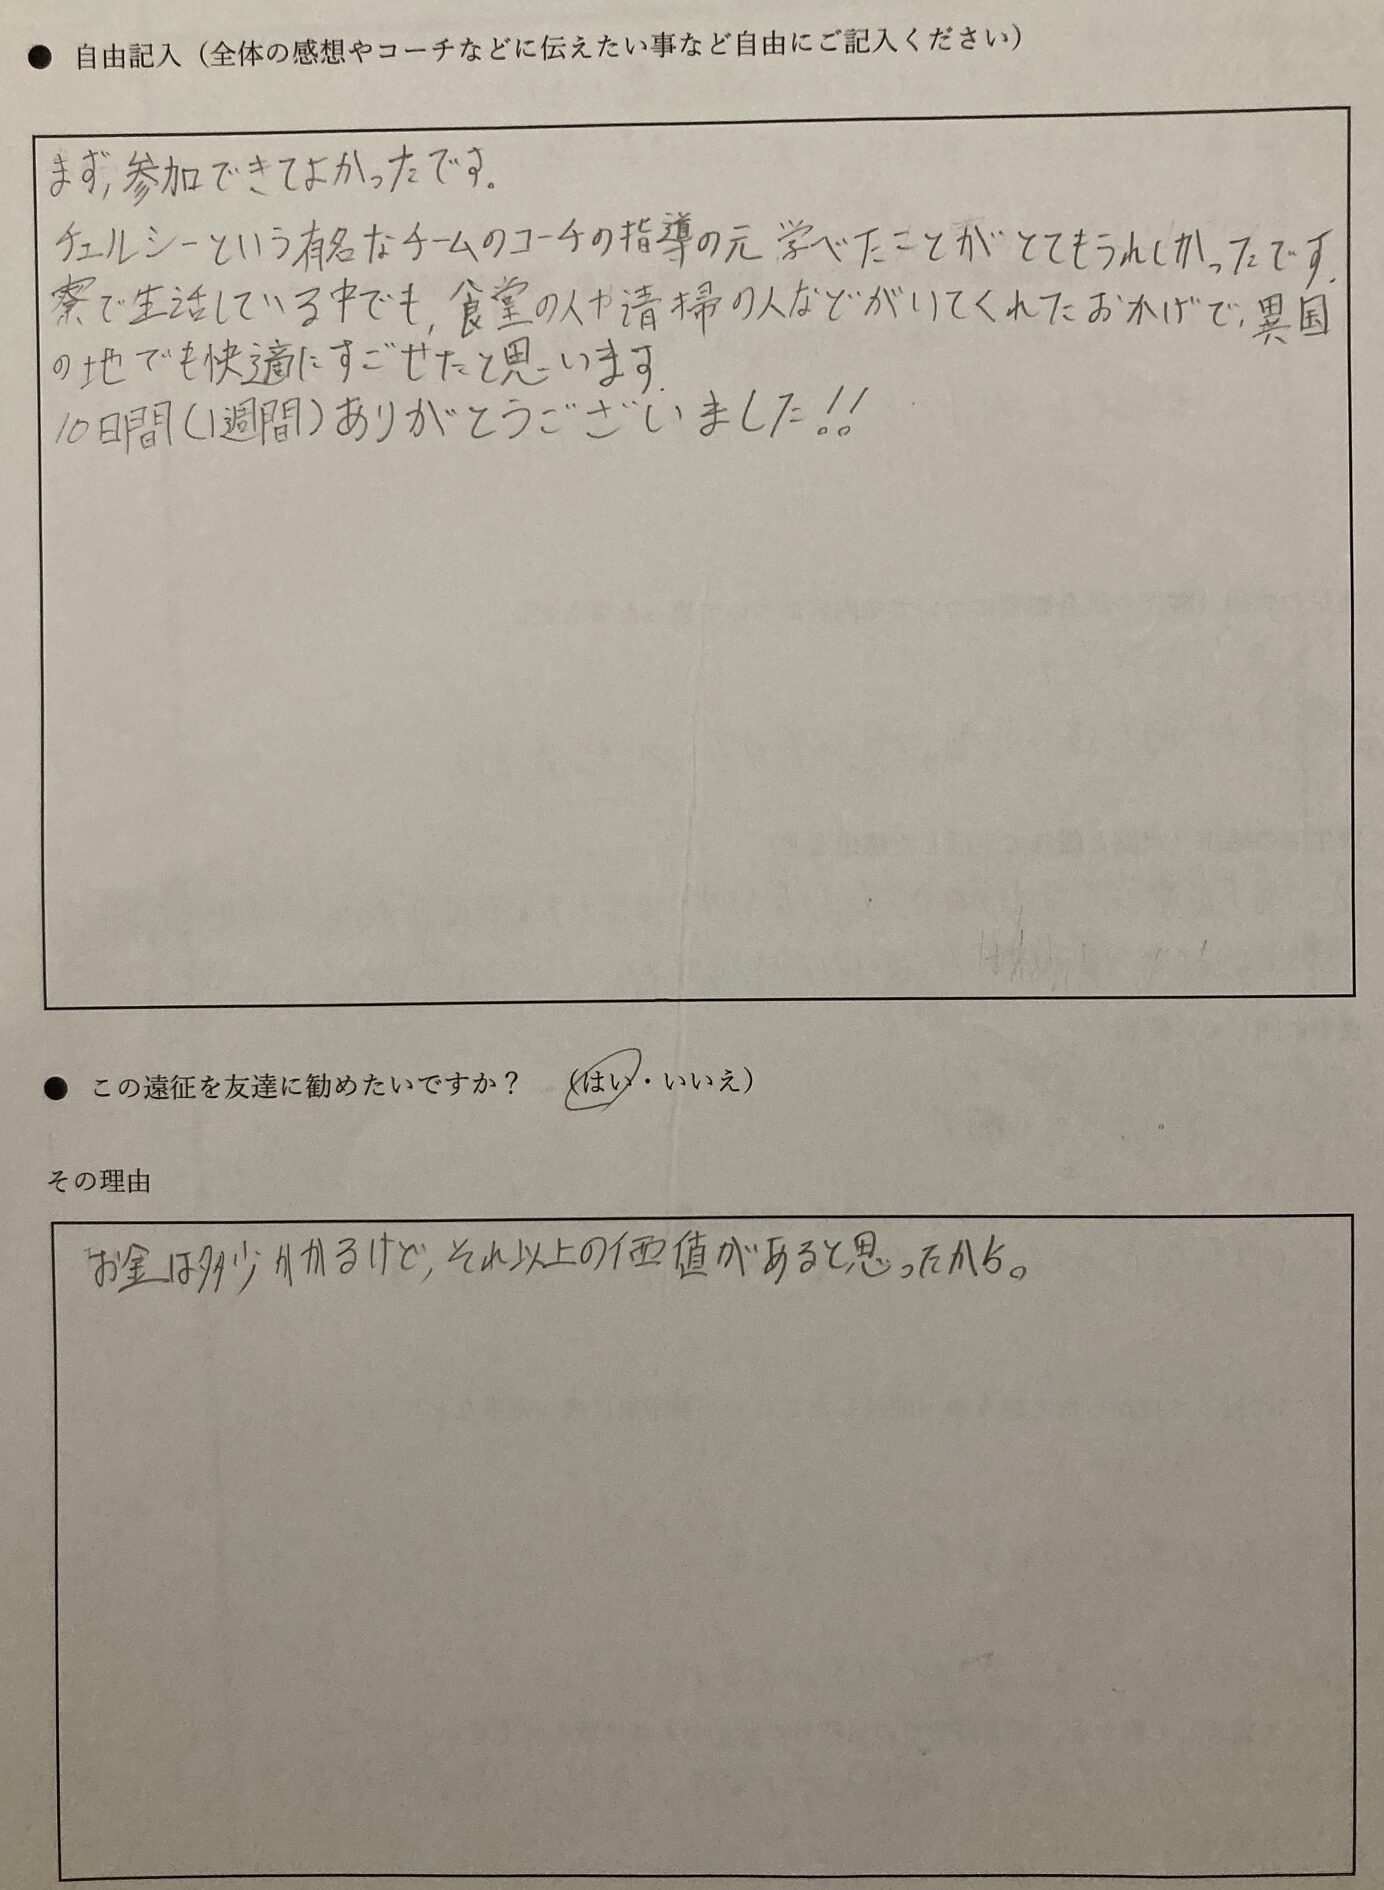 ● 自由記入（全体の感想やコーチなどに伝えたい事など自由にご記入ください）
まず,参加できてよかったです.
チェルシーという有名なチームのコーチの指導の元学べたことがとてもうれしかったです.
寮で生活している中でも,食堂の人や清掃の人などがいてくれたおかげで,異国
の地でも快適にすごせたと思います.
10日間(1週間)ありがとうございました!!
● この遠征を友達に勧めたいですか？ （はい・いいえ）
その理由
お金は多少かかるけど,それ以上の価値があると思ったから。